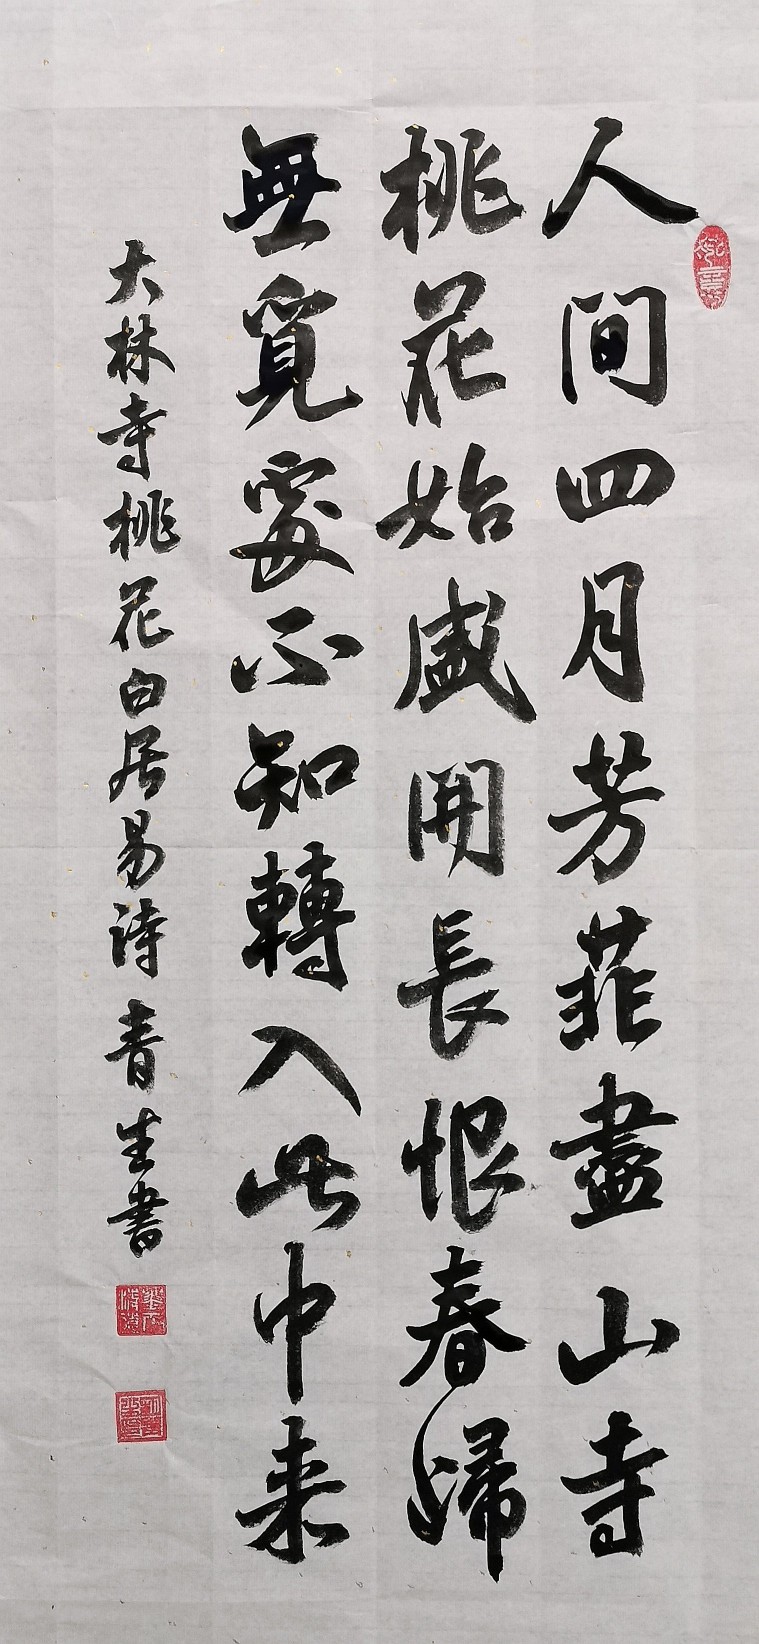 人间四月芳菲盡山寺
桃花始盛開長恨春歸
無覓處不知轉入此中来
大林寺桃花白居易诗 青生書